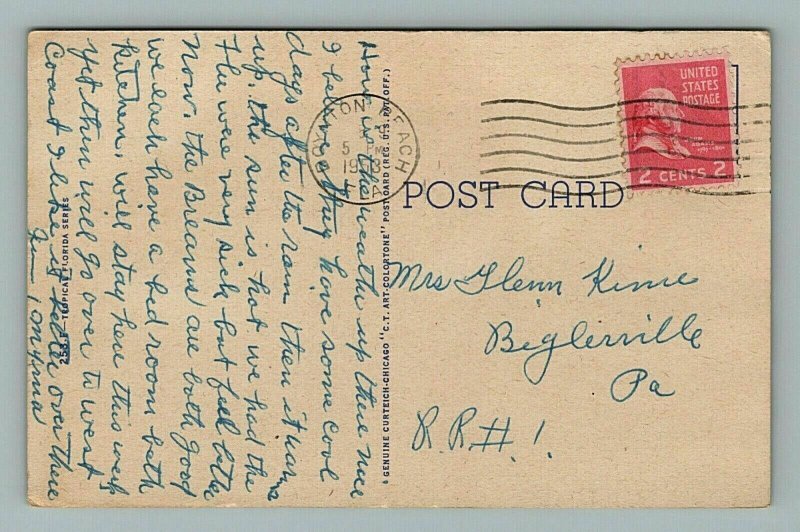 How is the weather up there nice
I believe they have some cool
days after the rain then it warms
up. the sun is hot we had the
Flu were very sick but feel better
Now. the Breams are both good
we each have a bed room bath
kitchen, will stay here this week
yet then will go over to west
Coast I like it better over there
253-F—TROPICAL FLORIDA SERIES
"GENUINE CURTEICH-CHICAGO "C.T. ART-COLORTONE" POST CARD (REG. U.S. PAT. OFF.)
BOYNTON BEACH
5 PM
19
UNITED
STATES
POSTAGE
JOHN
ADAMS
2 CENTS 2
POST CARD
Mrs Glenn Kime
Biglerville
Pa
R.R.# 1.